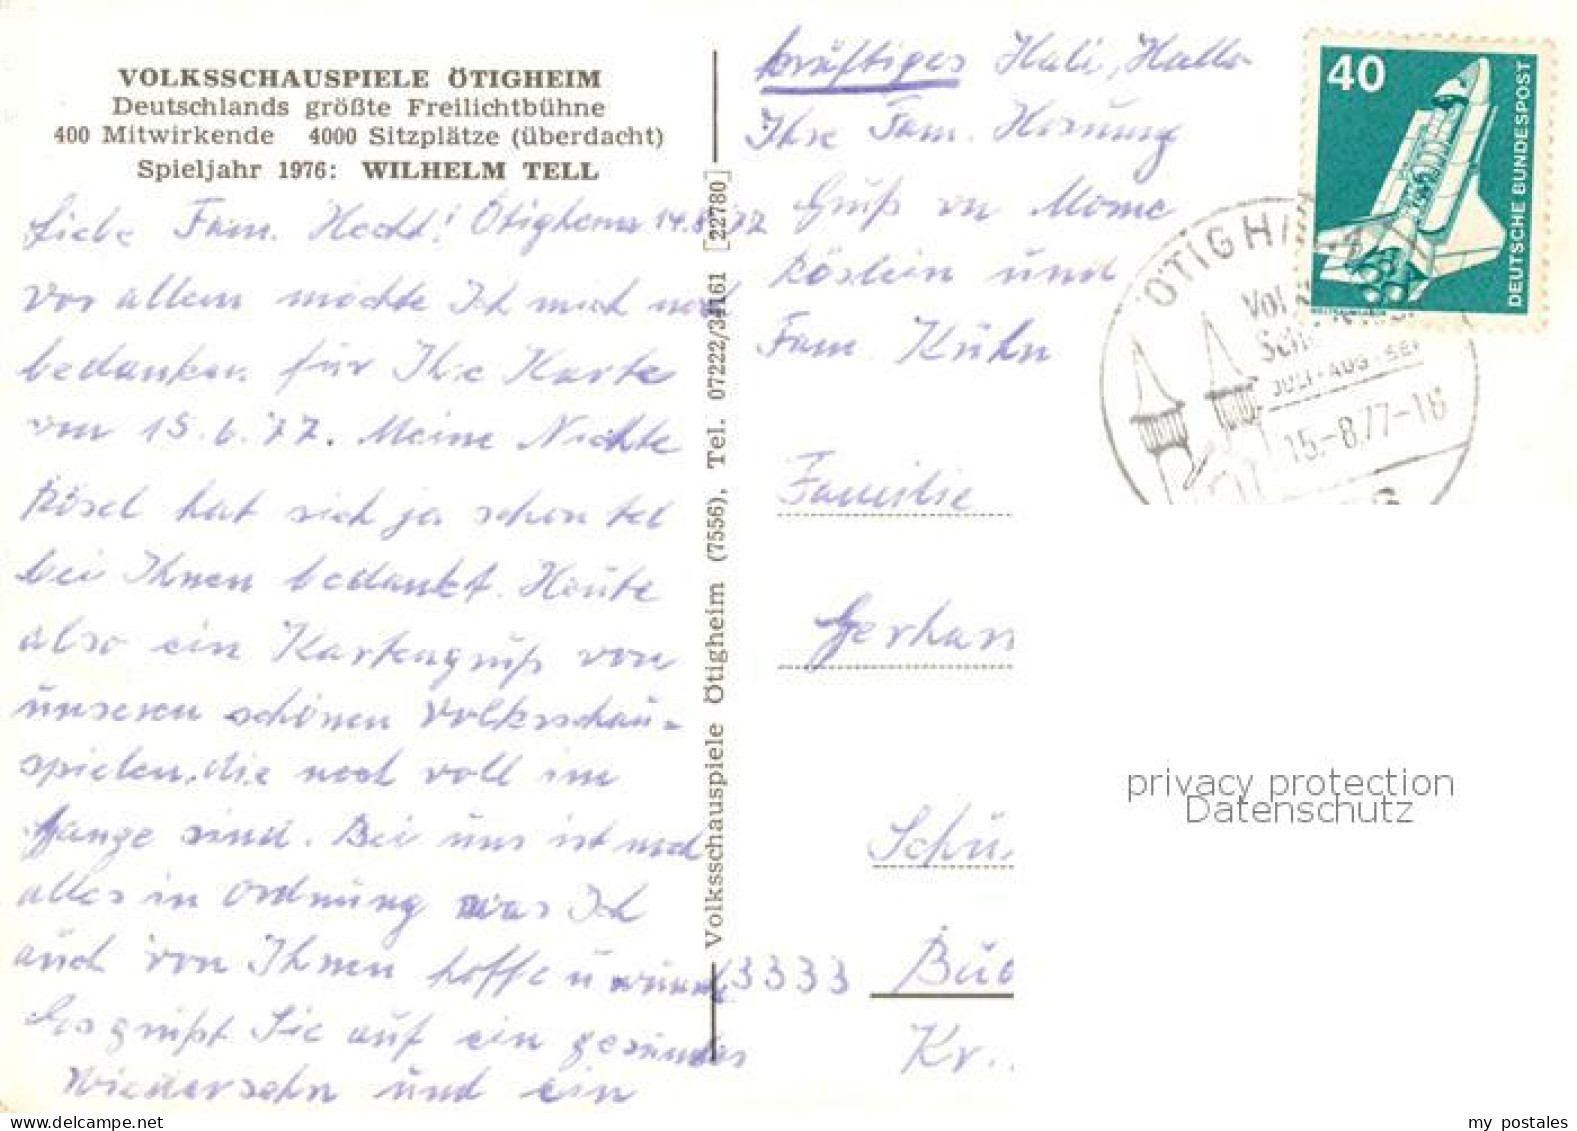 VOLKSSCHAUSPIELE ÖTIGHEIM
Deutschlands größte Freilichtbühne
400 Mitwirkende 4000 Sitzplätze (überdacht)
Spieljahr 1976: WILHELM TELL
Liebe Fam. Hecht! Ötigheim 14.8.77
Vor allem möchte Ich mich noch
bedanken für Ihre Karte
vom 15.6.77. Meine Nichte
Rösel hat sich ja schon tel
bei Ihnen bedankt. Heute
also ein Kartengruß von
unseren schönen Volksschau=
spielen, die noch voll im
Gange sind. Bei uns ist noch
alles in Ordnung was Ich
auch von Ihnen hoffe u wünsche
Es grüßt Sie auf ein gesundes
Wiedersehn und ein
kräftiges Hali, Hallo
Ihre Fam. Hornung
Gruß von
Röslein und
Fam. Kühn
Volksschauspiele Ötigheim (7556), Tel. 07222/34161 [22780]
40
DEUTSCHE BUNDESPOST
ÖTIGH
Vol
JULI-AUG-SEP
15.-8.77-18
Familie
Gerhar
Schü
3333 Bü
Kr.
privacy protection
Datenschutz
delcampe.net
my_postales